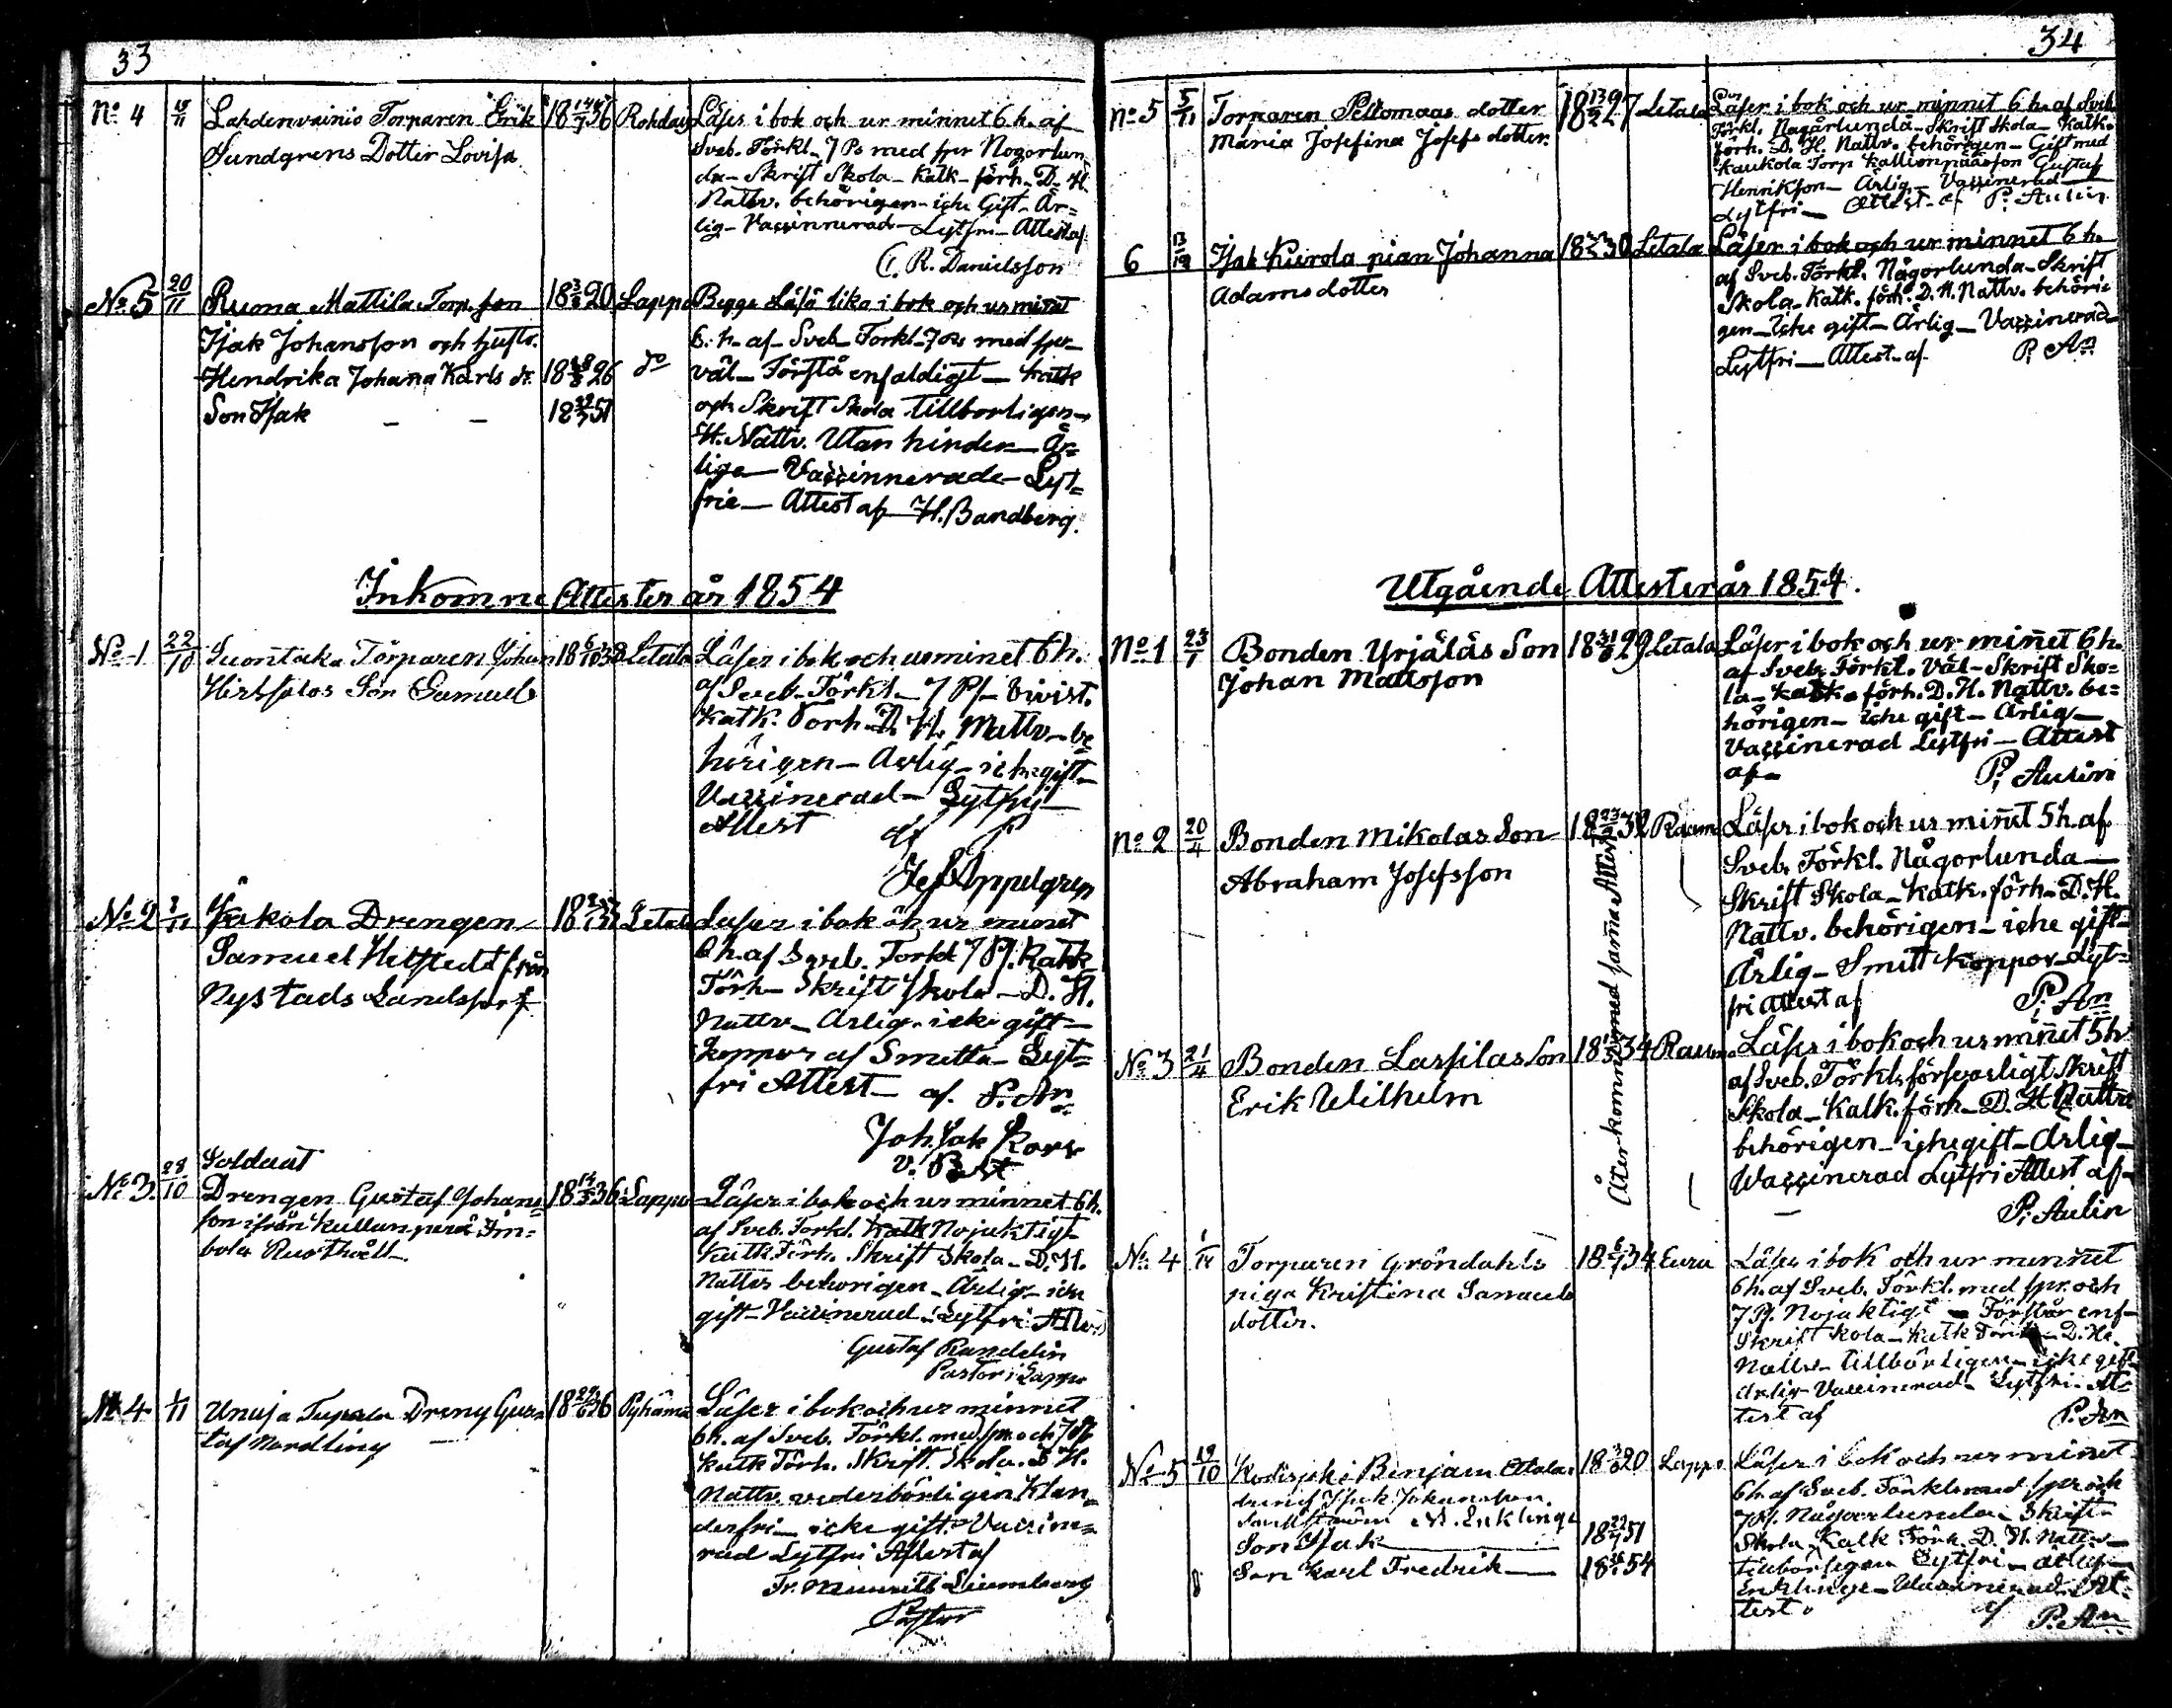 33
No 4 15/11 Lahdenvainio Torparen Erik 18 36 Rohdais Läser i bok och ur minnet 6 h. af
Sundgrens Dotter Lovisa Sveb. Förkl. 7 Ps med spr Nogorlun
da - Skrift Skola - Katk - förh. D. H.
Nattv. behörigen - icke Gift - Är=
lig - Vaccinnerad - Lytfri - Attest af
C. R. Danielsson
No 5 20/11 Ruona Mattila Torp. son 18 20 Lappo Begge Läsa lika i bok och ur minet
Isak Johansson och hustr. 6. h. af Sveb. Forkl. 7 Ps med spr
Hendrika Johana Karls dr. 18 26 do väl - Förstå enfaldigt - Katk
Son Isak - - 18 22/7 51 och Skrift Skola tillborligen
H. Nattv. Utan hinder - Är=
liga - Vaccinnerade - Lyt=
frie - Attest af H. Bandberg.
Inkomne Attester år 1854
No 1 22/10 Suontaka Torparen Johan 18 38 Letala Läser i bok och ur minet 6 h.
Son Samuel af Sveb. Förkl. 7 Ps - bivist.
Katk. Forh. D. H. Nattv. be
hörigen - Ärlig - icke gift -
Vaccinerad - Lytfri -
Attest af
Appelgren
No 2 Jakola Drengen 18 Letala Läser i bok o ur minet
Samuel Helstedt från 6 h. af Sveb. Forkl 7 Ps. Katk
Nystads Landsförs. Förh - Skrift Skola - D. H.
Nattv - Ärlig - icke gift -
koppor af Smitta - Lyt=
fri Attest - af. P. An
Joh. Isak Roos
v. Past
No 3 28/10 Soldaat
Drengen Gustaf Johans 18 36 Lappo Läser i bok och ur minnet 6 h.
son ifrån Kullanperä Im= af Sveb. Forkl. Katk Nojaktigt
bola Rusthåll - Katk Förh. Skrift Skola - D. H.
Nattv behorigen - Ärlig - icke
gift - Vaccinerad - Lytfri Attest
Gustaf Randelin
Pastor i Lappo
No 4 1/11 Unaja Tupala Dreng Gus 18 26 Pyhäma Läser i bok och ur minnet
taf Nordling - 6 h. af Sveb. Förkl. med spr och 7 Ps
Katk Förh. Skrift. Skola. D. H.
Nattv vederbörligen Klan=
derfri - icke gift - Vaccine=
rad Lytfri Attest af
Fr. Limnberg
Pastor
34
No 5 5/11 Torparen Peltomaas dotter 18 27 Letala Läser i bok och ur minnet 6 h. af Sveb
Maria Josefina Josefs dotter. Förkl. Nagårlunda - Skrift Skola - Katk.
förh. D. H. Nattv. behörigen - Gift med
Kaukola Torp Kallionpääs son Gustaf
Henrikson - Ärlig - Vaccinerad -
Lytfri - Attest - af P. Aulin
6 13/12 Isak Kierola pian Johanna 18 30 Letala Läser i bok och ur minnet 6 h.
Adamsdotter af Sveb. Förkl. Någorlunda - Skrift
Skola - Katk. förh. D. H. Nattv. behöri=
gen - icke gift - Ärlig - Vaccinerad -
Lytfri - Attest - af P. An
Utgående Attester år 1854.
No 1 23/1 Bonden Yrjäläs Son 18 29 Letala Läser i bok och ur minnet 6 h.
Johan Mattsson af Sveb. Förkl. Väl - Skrift Sko=
la - Katk. förh. D. H. Nattv. be=
hörigen - icke gift - Ärlig -
Vaccinerad Lytfri - Attest
af - P. Aulin
No 2 20/4 Bonden Mikolas Son 18 32 Raumo Läser i bok och ur minnet 5 h. af
Abraham Josefsson Sveb. Förkl. Någorlunda -
Skrift Skola - Katk. förh. D. H.
Nattv. behörigen - icke gift -
Ärlig - Smitt koppor - Lyt=
fri attest af P. An
Åter kommit med samma Attest
No 3 21/4 Bonden Lassilas Son 18 34 Raumo Läser i bok och ur minnet 5 h
Erik Wilhelm af Sveb. Förkl. försvarligt Skrift
Skola - Katk. förh. D. H. Nattv
behörigen - icke gift - Ärlig -
Waccinerad Lytfri Attest af -
P. Aulin
No 4 Torparen Gröndahls 18 34 Eura Läser i bok och ur minnet
piga Kristina Samuels 6 h. af Sveb. Förkl. med spr. och
dotter. 7 Ps. Nojaktigt - Förstår enf-
Skrift Skola - Katk Förh - D. H.
Nattv - tillbörligen - icke gift
ärlig - Vaccinerad - Lytfri - At=
test af P. An
No 5 19/10 Kodisjoki Benjam 18 20 Lappo Läser i bok och ur minet
Isak Johansson 6 h. af Sveb. Förkl med spr och
Enklinge 7 Ps. Någorlunda - Skrift -
Son Isak 18 22/7 51 Skola - Katk Förh D. H. Nattv -
Son Karl Fredrik - 18 54 tillbörligen Lytfri - ärlig -
Enklinge - Vaccinerad - At=
test af P. An